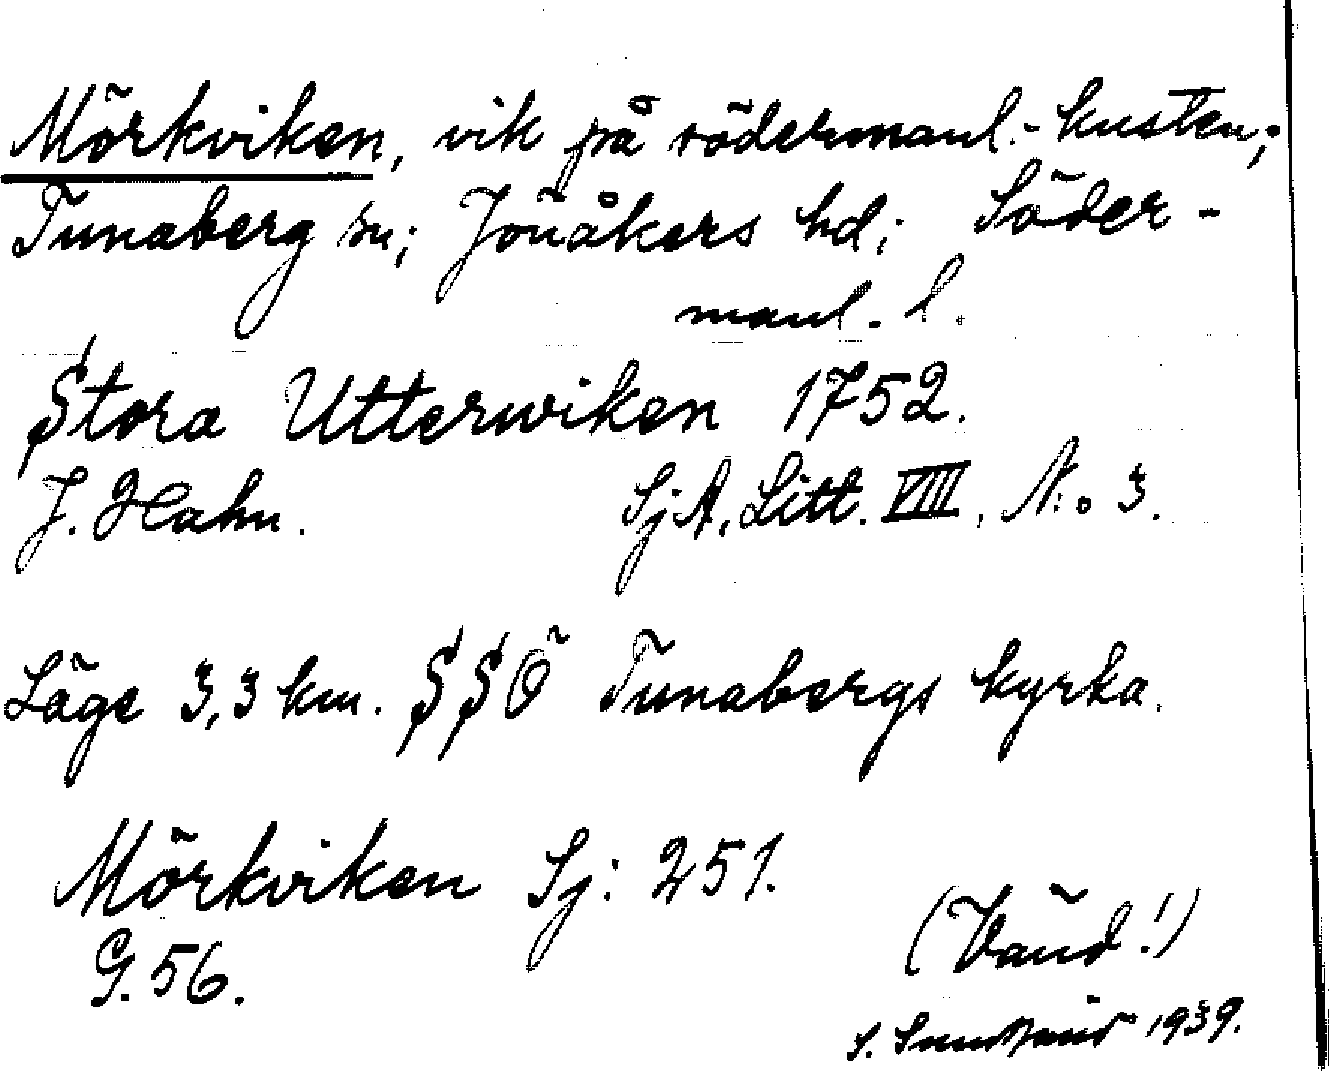 Mörkviken, vik på södermanl.-kusten;
Tunaberg sn; Jönåkers hd; Söder-
manl. l.
Stora Utterwiken 1752.
J. Hahn. SjA, Litt. VIII, N:o 3.
Läge 3,3 km. SSÖ Tunabergs kyrka.
Mörkviken Sj: 251.
G. 56.
(Vänd!)
S. 1939.